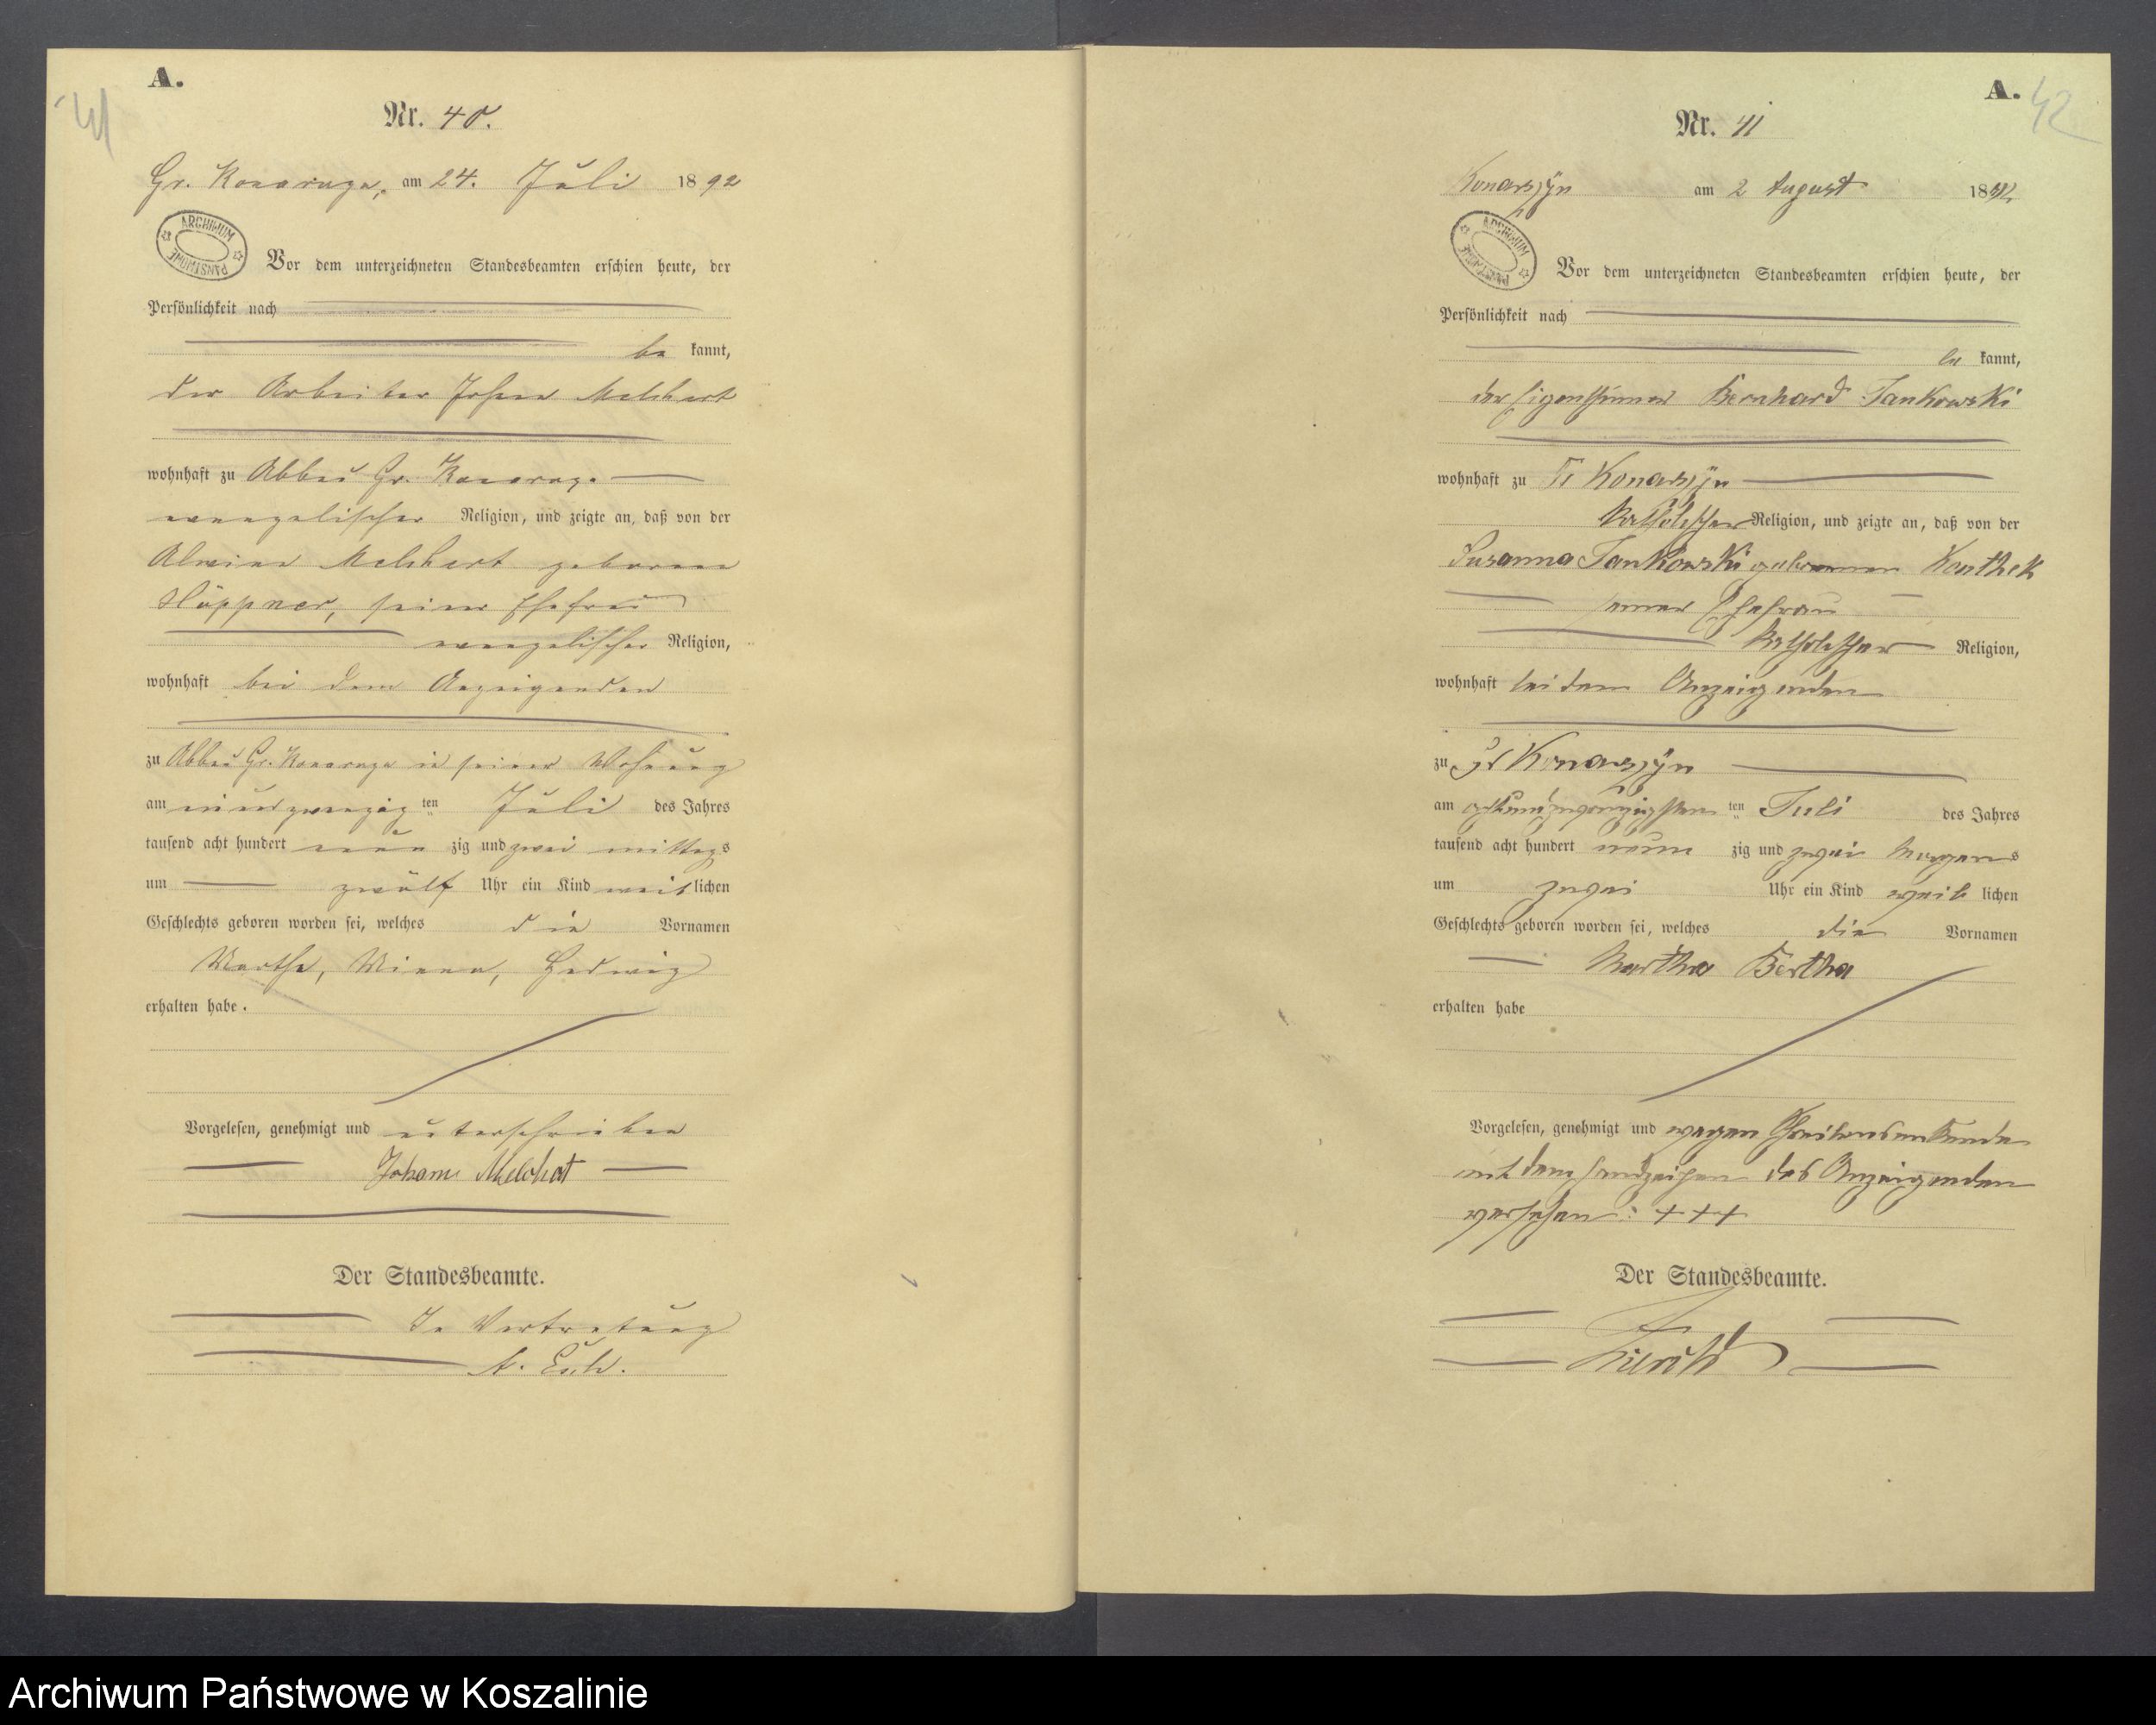 A.
41
Nr. 40.
Gr. Konarczyn, am 24. Juli 1892
ARCHIWUM PAŃSTWOWE
Vor dem unterzeichneten Standesbeamten erschien heute, der
Persönlichkeit nach
be kannt,
der Arbeiter Johann Melchert
wohnhaft zu Abbau Gr. Konarczyn
evangelischer Religion, und zeigte an, daß von der
Alwine Melchert geborene
Höppner, seiner Ehefrau
evangelischer Religion,
wohnhaft bei dem Anzeigenden
zu Abbau Gr. Konarczyn in seiner Wohnung
am einundzwanzig ten Juli des Jahres
tausend acht hundert neun zig und zwei mittags
um zwölf Uhr ein Kind weib lichen
Geschlechts geboren worden sei, welches die Vornamen
Marthe, Minna, Hedwig
erhalten habe.
Vorgelesen, genehmigt und unterschrieben
Johann Melchat
Der Standesbeamte.
In Vertretung
A.
42
Nr. 41
Konarzyn am 2 August 1892
ARCHIWUM PAŃSTWOWE
Vor dem unterzeichneten Standesbeamten erschien heute, der
Persönlichkeit nach
be kannt,
der Eigenthümer Bernhard Jankowski
wohnhaft zu Gr Konarzyn
katholischer Religion, und zeigte an, daß von der
Susanna Jankowski geborenen
seiner Ehefrau
katholischer Religion,
wohnhaft bei dem Anzeigenden
zu Gr Konarzyn
am achtundzwanzigsten ten Juli des Jahres
tausend acht hundert neun zig und zwei Morgens
um zwei Uhr ein Kind weib lichen
Geschlechts geboren worden sei, welches die Vornamen
Martha Bertha
erhalten habe
Vorgelesen, genehmigt und wegen Schreibensunkunde
mit dem Handzeichen des Anzeigenden
versehen: +++
Der Standesbeamte.
Archiwum Państwowe w Koszalinie